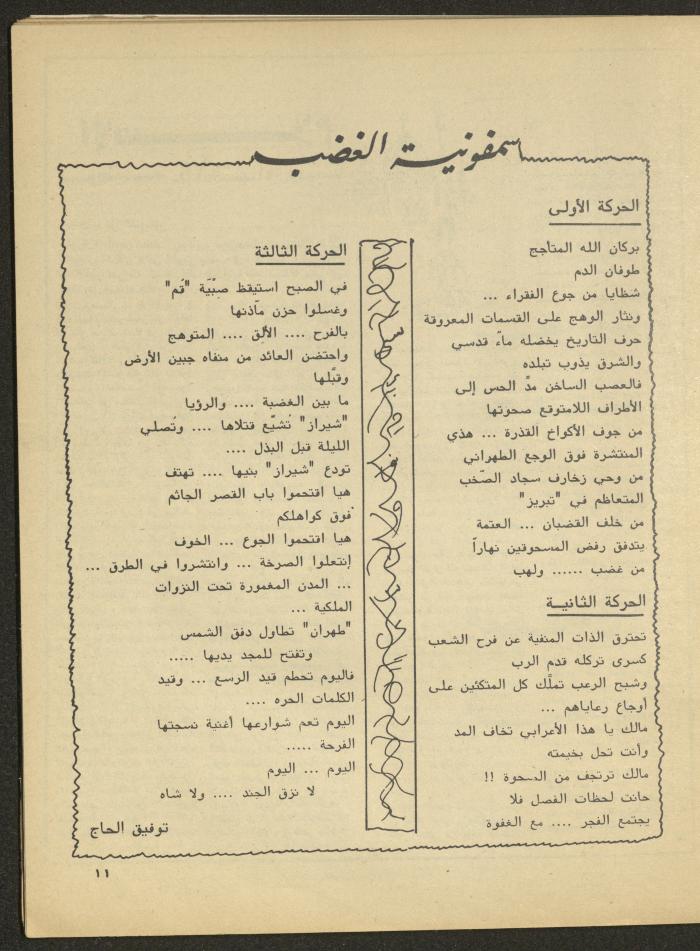 سمفونية الغضب
الحركة الأولى
بركان الله المتأجج
طوفان الدم
شظايا من جوع الفقراء ...
ونثار الوهج على القسمات المعروقة
حرف التاريخ يخضله ماءً قدسي
والشرق يذوب تبلده
فالعصب الساخن مدّ الحس إلى
الأطراف اللامتوقع صحوتها
من جوف الأكواخ القذرة ... هذي
المنتشرة فوق الوجع الطهراني
من وحي زخارف سجاد الصّخب
المتعاظم في "تبريز"
من خلف القضبان ... العتمة
يتدفق رفض المسحوقين نهاراً
من غضب ...... ولهب
الحركة الثانيــة
تحترق الذات المنفية عن فرح الشعب
كسرى تركله قدم الرب
وشبح الرعب تملّك كل المتكئين على
أوجاع رعاياهم ...
مالك يا هذا الأعرابي تخاف المد
وأنت تحل بخيمته
مالك ترتجف من الصحوة !!
حانت لحظات الفصل فلا
يجتمع الفجر .... مع الغفوة
الحركة الثالثة
في الصبح استيقظ صبْيَة "قُم"
وغسلوا حزن مآذنها
بالفرح .... الألِق .... المتوهج
واحتضن العائد من منفاه جبين الأرض
وقبّلها
ما بين الغضبة .... والرؤيا
"شيراز" تُشيّع قتلاها .... وتُصلي
الليلة قبل البذل ....
تودع "شيراز" بنيها .... تهتف
هيا اقتحموا باب القصر الجاثم
فوق كواهلكم
هيا اقتحموا الجوع ... الخوف
إنتعلوا الصرخة ... وانتشروا في الطرق ...
... المدن المغمورة تحت النزوات
الملكية ...
"طهران" تطاول دفق الشمس
وتفتح للمجد يديها .....
فاليوم تحطم قيد الرسغ ... وقيد
الكلمات الحره ....
اليوم تعم شوارعها أغنية نسجتها
الفرحة .....
اليوم ... اليوم
لا نزق الجند .... ولا شاه
توفيق الحاج
١١